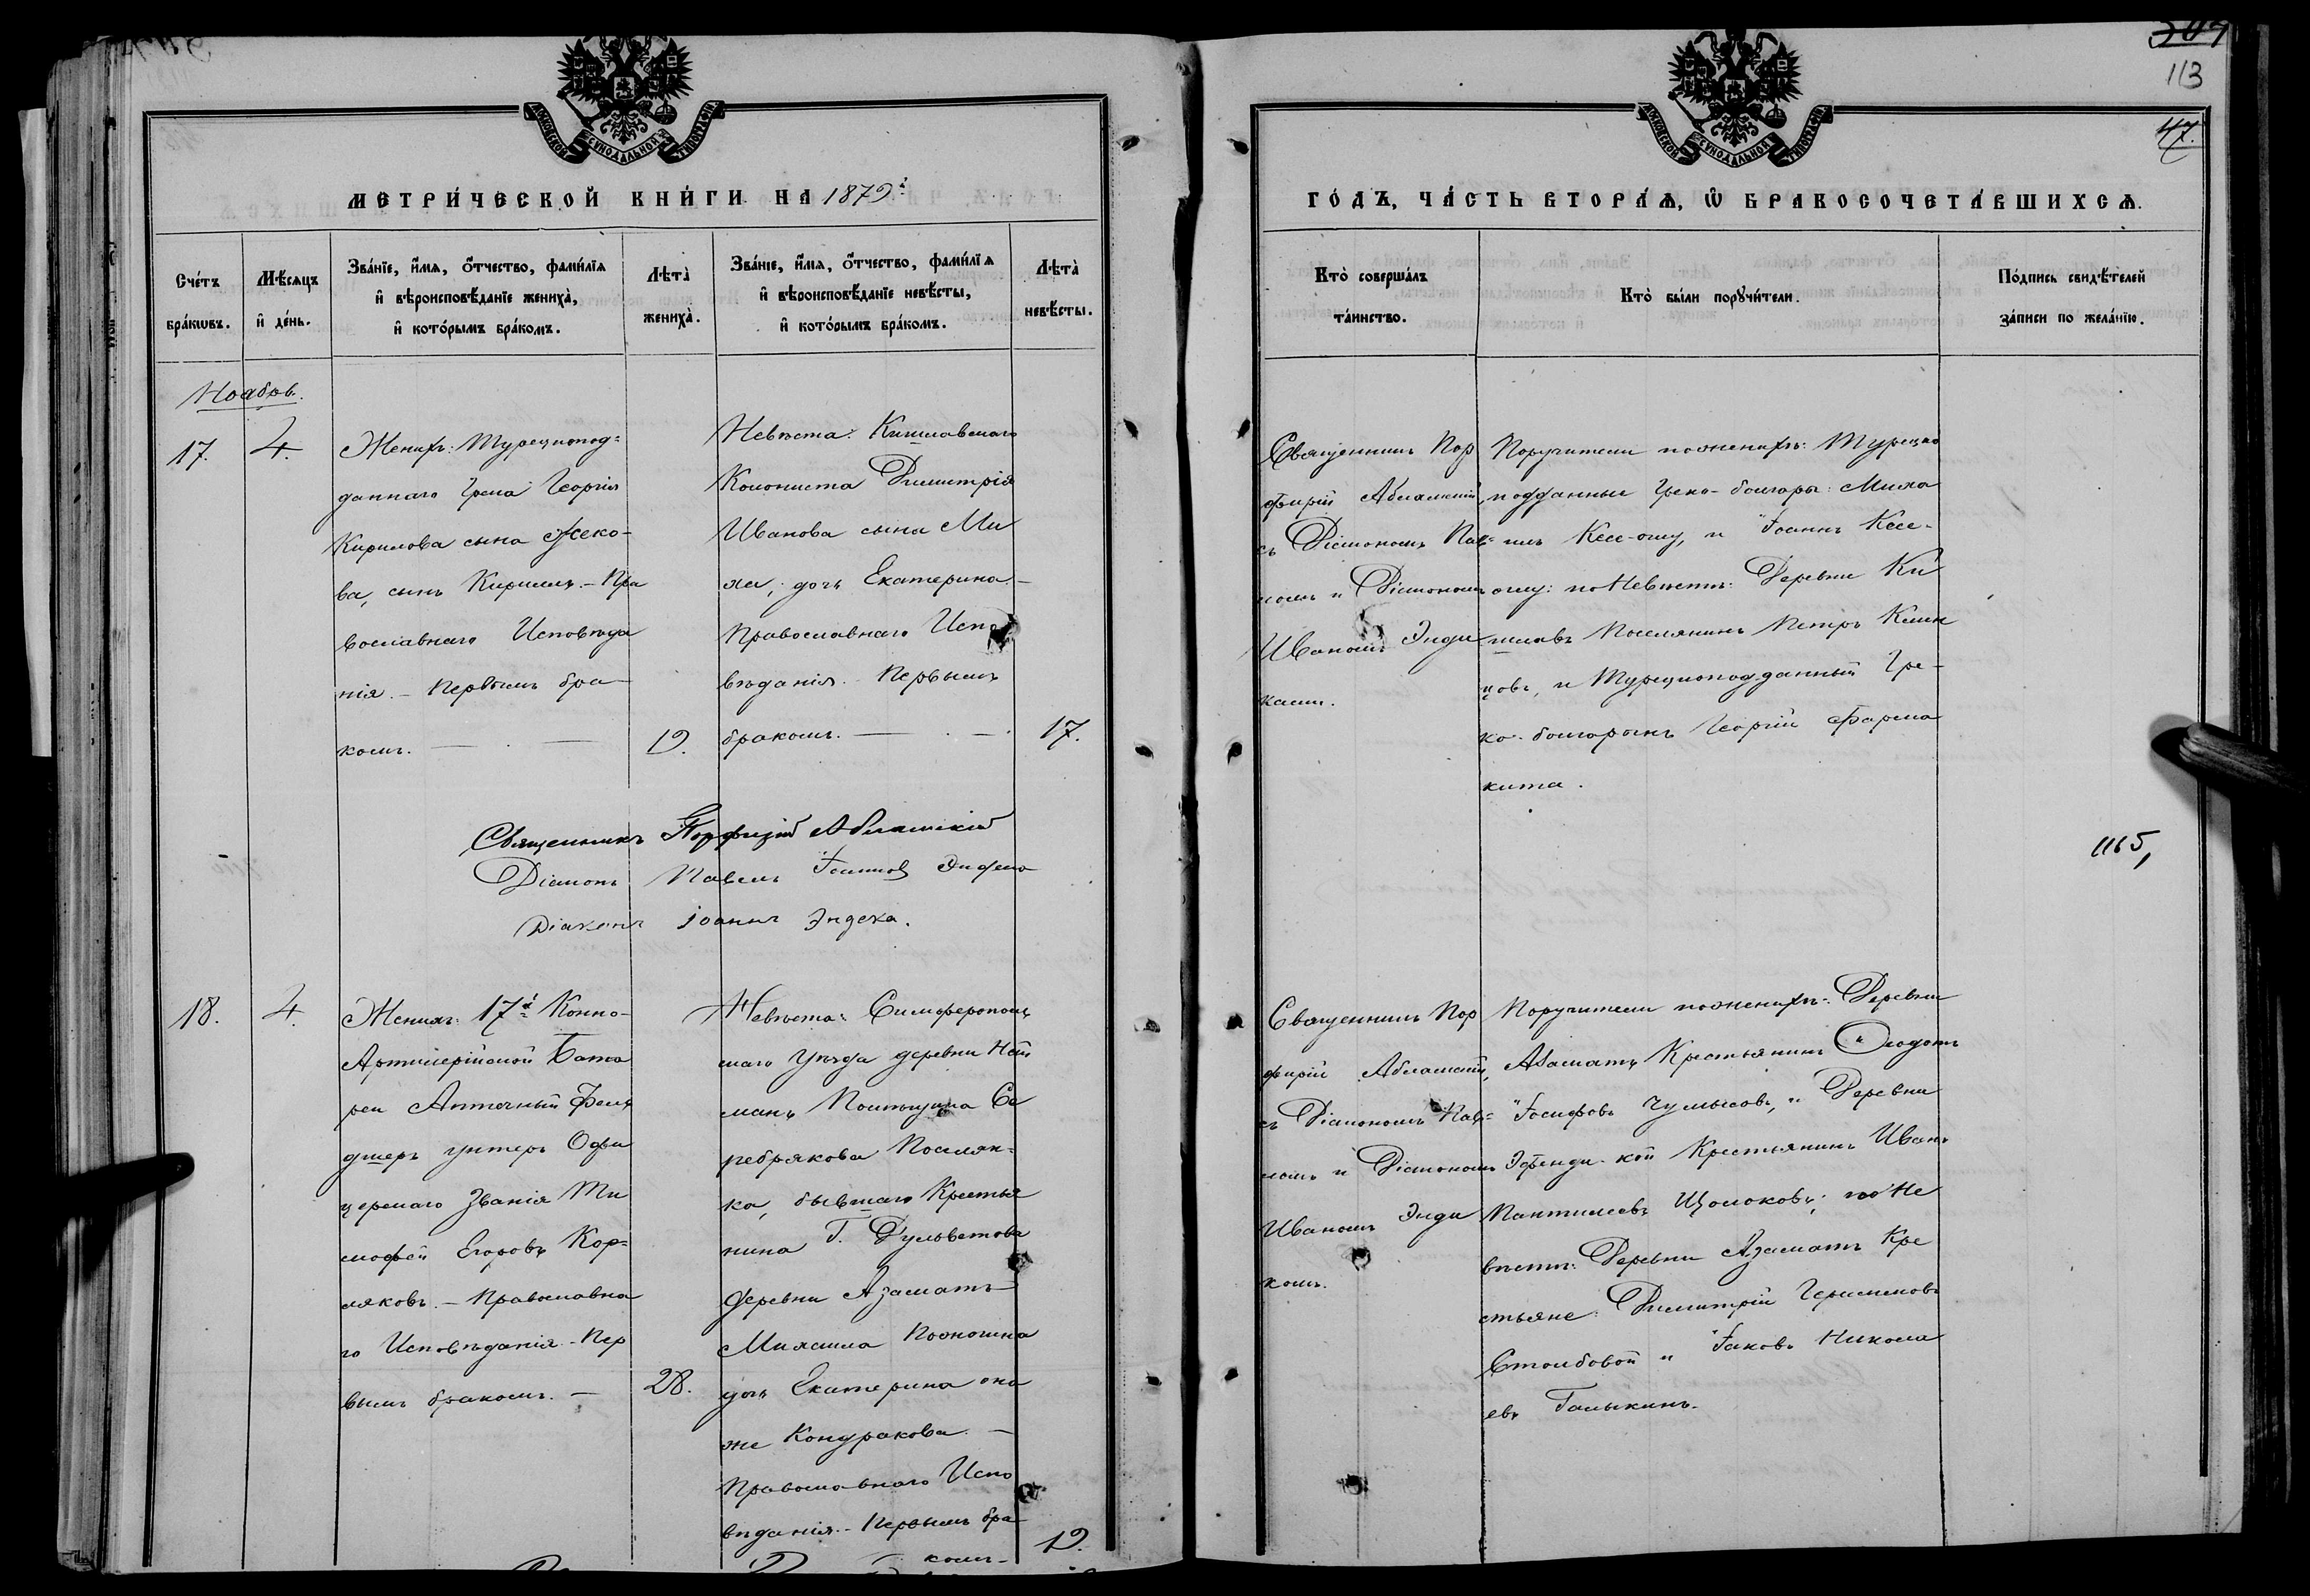 113
47.
МОСКОВСКОЙ СѴНОДАЛЬНОЙ ТИПОГРАФІИ
МЕТРИ́ЧЕСКОЙ КНИ́ГИ НА 1879й
Сче́тъ бра́кѡвъ.
Мѣ́сяцъ и҆ де́нь.
Зва́нїе, и҆́мѧ, ѻ҆́тчество, фами́лїѧ
и҆ вѣроисповѣ́данїе жениха̀,
и҆ кото́рымъ бра́комъ.
Лѣта̀ жениха̀.
Зва́нїе, и҆́мѧ, ѻ҆́тчество, фами́лїѧ
и҆ вѣроисповѣ́данїе невѣ́сты,
и҆ кото́рымъ бра́комъ.
Лѣта̀ невѣ́сты.
Ноябрь.
17.
4.
Женихъ: Турецкопод=
даннаго Грека Георгія
Кирилова сына
ва, сынъ Кириллъ. – Пра
вославнаго Исповѣда
нія. – Первымъ бра-
комъ.
19.
Невѣста: Кишлавскаго
Колониста Димитрія
Иванова сына Ми
ха, дочь Екатерина –
Православнаго Испо
вѣданія. Первымъ
бракомъ.
17.
Священникъ Порфирій Абламскій
Діаконъ Павелъ Іоанновъ
Діаконъ Іоаннъ Эндека.
18.
4.
Женихъ: 17й Конно-
Артилерійской Бата
реи Аптечный Фель
дшеръ унтеръ Офи
церскаго Званія Ти
мофей Егоровъ Кор=
ляковъ. – Православна
го Исповѣданія – Пер
вымъ бракомъ. –
28.
Невѣста: Симферополь
скаго Уѣзда деревни
Помѣщика Се
ребрякова Поселян-
ка, бывшаго Крестья
нина Г.
деревни Азаматъ
Михаила
дочь Екатерина она
же Кондракова. –
Православнаго Испо
вѣданія. – Первымъ бра
комъ –
19.
МОСКОВСКОЙ СѴНОДАЛЬНОЙ ТИПОГРАФІИ
ГО́ДЪ, ЧА́СТЬ ВТОРА́Ѧ, Ѽ БРАКОСОЧЕТА́ВШИХСѦ.
Кто̀ соверша́лъ та́инство.
Кто̀ бы́ли порꙋчи́тели.
По́дпись свидѣ́телей
за́писи по жела́нїю.
Священникъ Пор
фирій Абламскій,
съ Діакономъ Пав=
ломъ и Діакономъ
Иваномъ Энди
ками.
Поручители по женихѣ: Турецко
подданные Греко-болгары: Миха
илъ Кесе-оглу, и Іоаннъ Кесе-
оглу: по Невѣстѣ: Деревни Ки
шлавъ Поселянинъ Петръ
цовъ, и Турецкоподданный Гре-
ко-болгаринъ Георгій Фарма
кита.
1165,
Священникъ Пор
фирій Абламскій,
съ Діакономъ Пав=
ломъ и Діакономъ
Иваномъ Энди
комъ.
Поручители по женихѣ: Деревни
Азаматъ Крестьянинъ Ѳеодотъ
Іосифовъ Чумысовъ, и Деревни
Эфенди-кой Крестьянинъ Иванъ
Пантилеевъ Щолоковъ; по Не
вѣстѣ: Деревни Азаматъ Кре
стьяне: Димитрій Герасимовъ
Столбовой и Іаковъ Никола
евъ Галыкинъ.